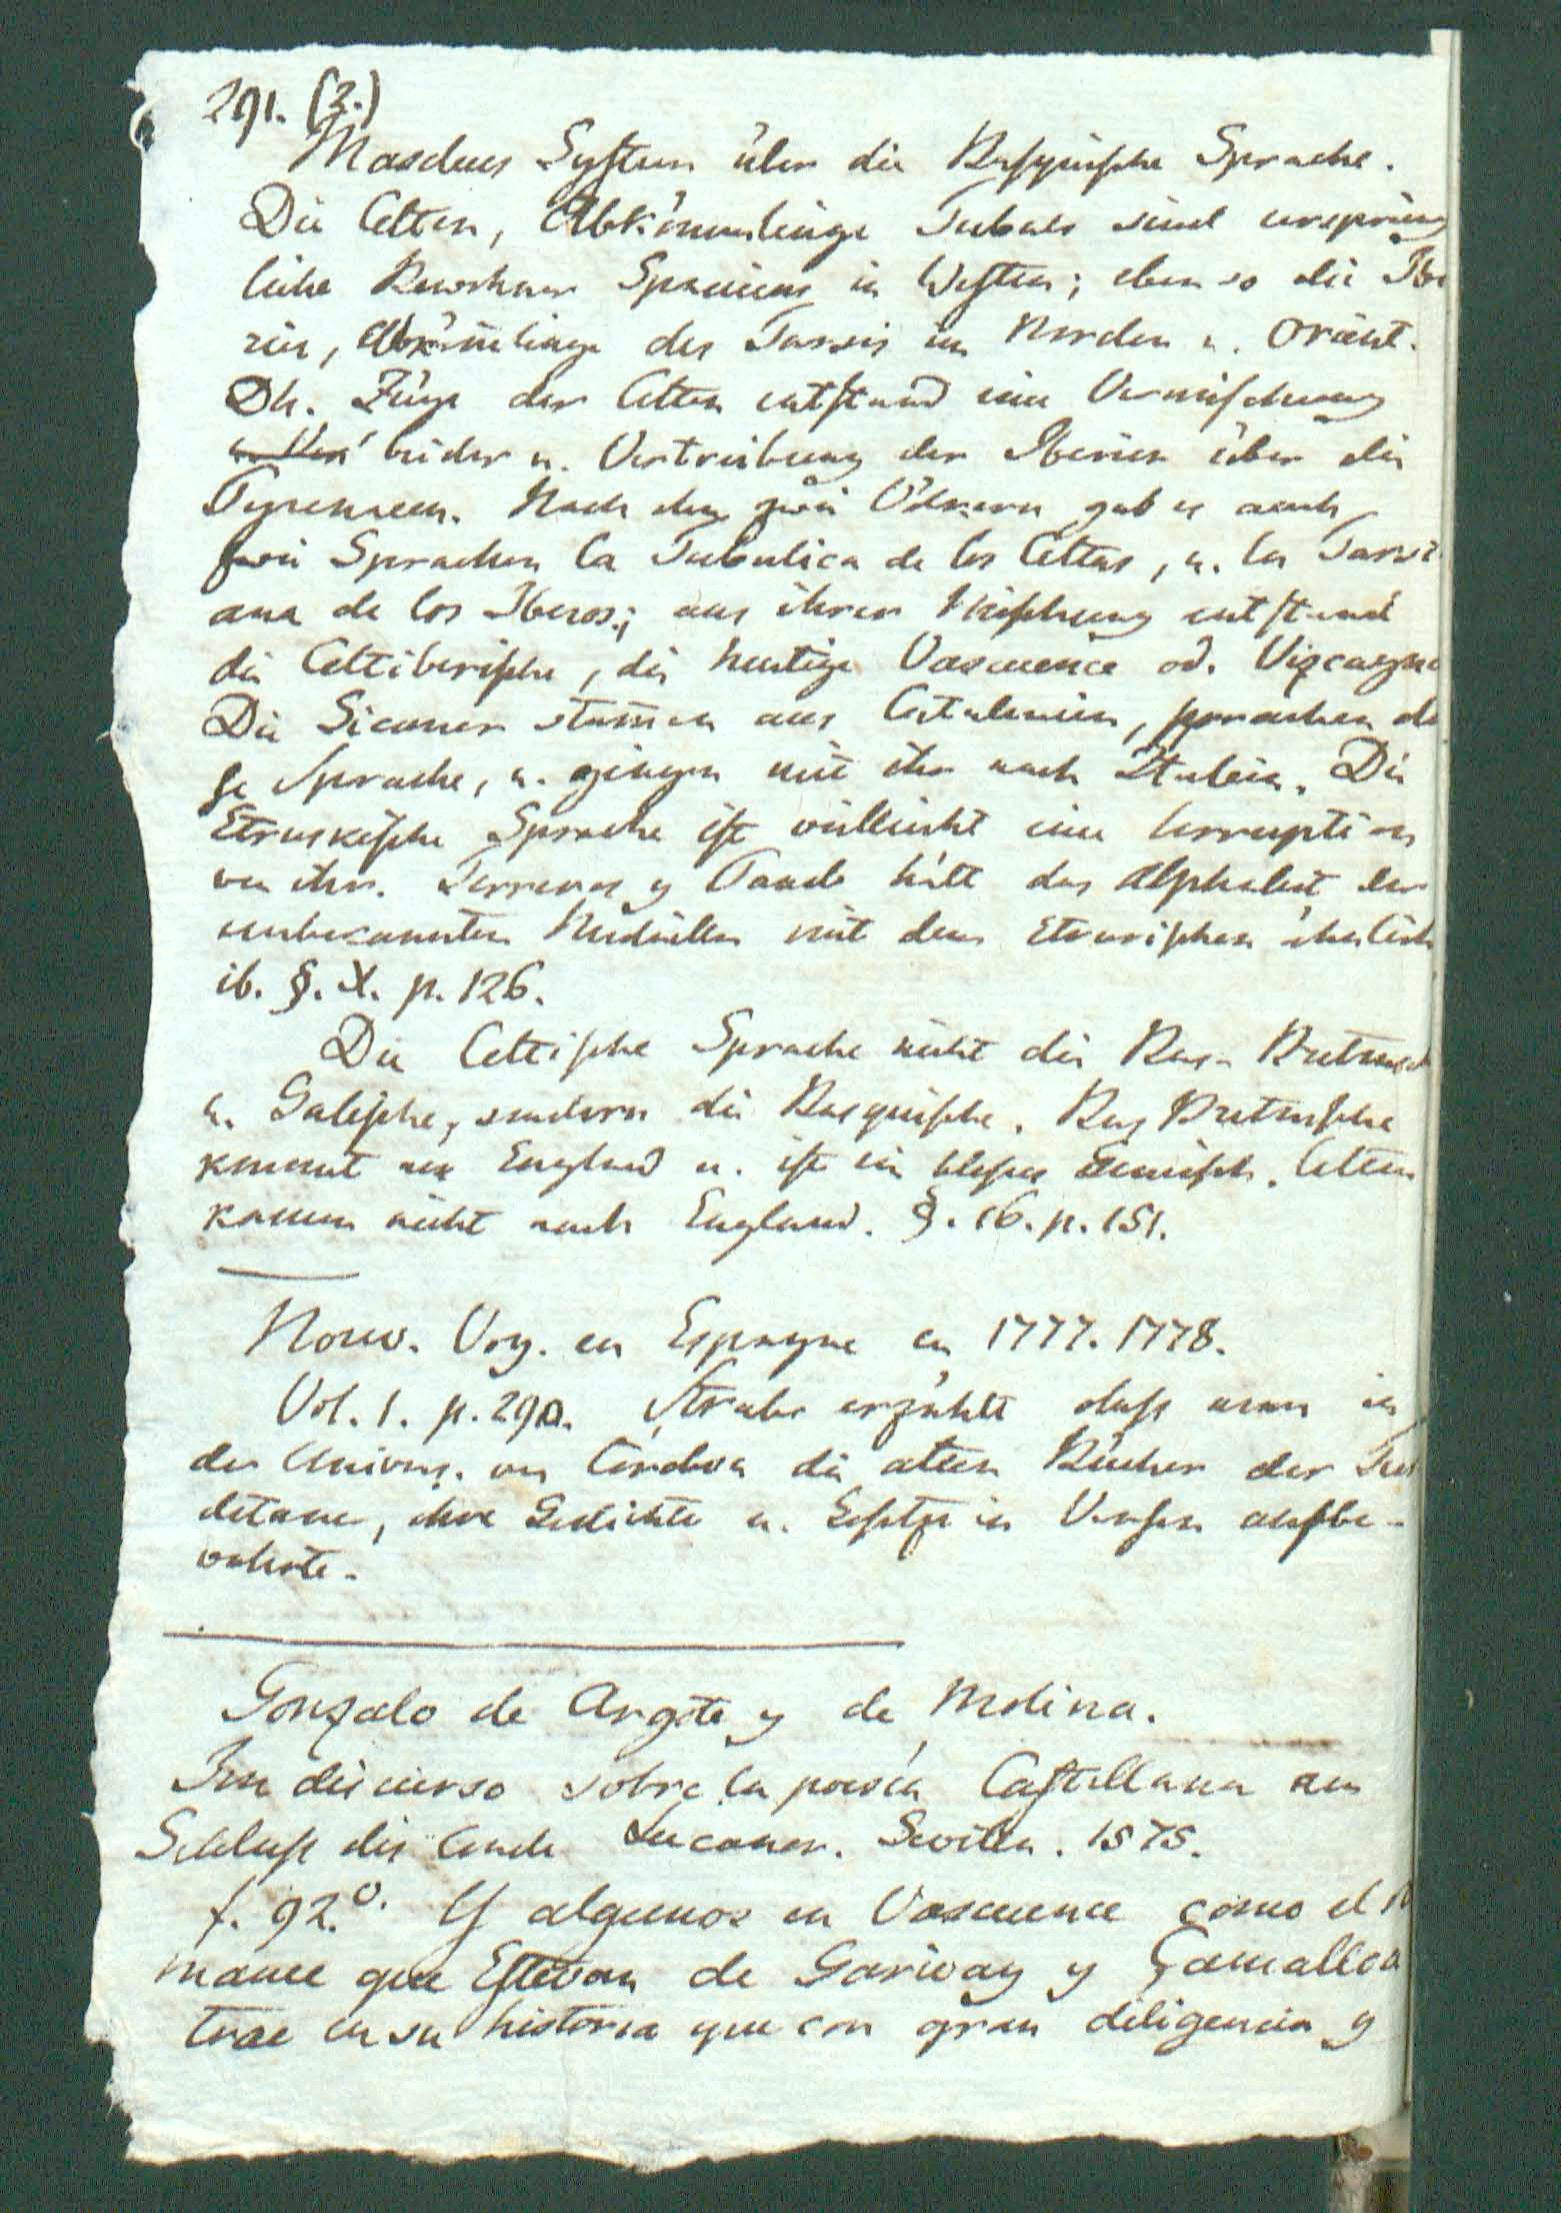 291. (2.)
Masdeus System über die Basquische Sprache.
Die Celten, Abkömmlinge Tubals sind ursprüng
liche Bewohner Spaniens in Westen; eben so die Ibe
rier, Abkömlinge des Tarsis im Norden u. Orient.
Dh. Züge der Celten entstand eine Vermischung
beider u. Vertreibung der Iberier über die
Pyrenaeen. Nach den zwei Völkern gab es auch
zwei Sprachen la Tubalica de los Celtas, u. la Tarsi
ana de los Iberos; aus ihrer Mischung entstand
die Celtiberische, die heutige Vascuence od. Vizcayna
Die Sicaner stam̄en aus Catalonien, sprachen die
se Sprache, u. gingen mit ihr nach Italien. Die
Etruskische Sprache ist vielleicht eine Corruption
von ihr. Terreros y Pando hält das Alphabet der
unbekannten Medaillen mit dem Etrurischen ähnlich
ib. §. X. p. 126.
Die Celtische Sprache nicht die Bas-Bretonsch
u. Galische, sondern die Basquische. Bas Bretonsche
kommt aus England u. ist ein blosses Gemisch. Celten
kamen nicht nach England. §. 16. p. 151.
Nouv. Voy. en Espagne en 1777. 1778.
Vol. 1. p. 290. Strabo erzählt dass man in
der Univers. von Cordova die alten Bücher der Tur
detaner, ihre Gedichte u. Gesetze in Versen aufbe-
wahrte.
Gonzalo de Argote y de Molina.
Im discurso sobre la poesía Castellana am
Schluss des Conde Lucanor. Sevilla. 1575.
f. 92.º Y algunos en Vascuence como el R
mance que Estevan de Garivay y Çamalloa
trae en su historia que con gran diligencia y